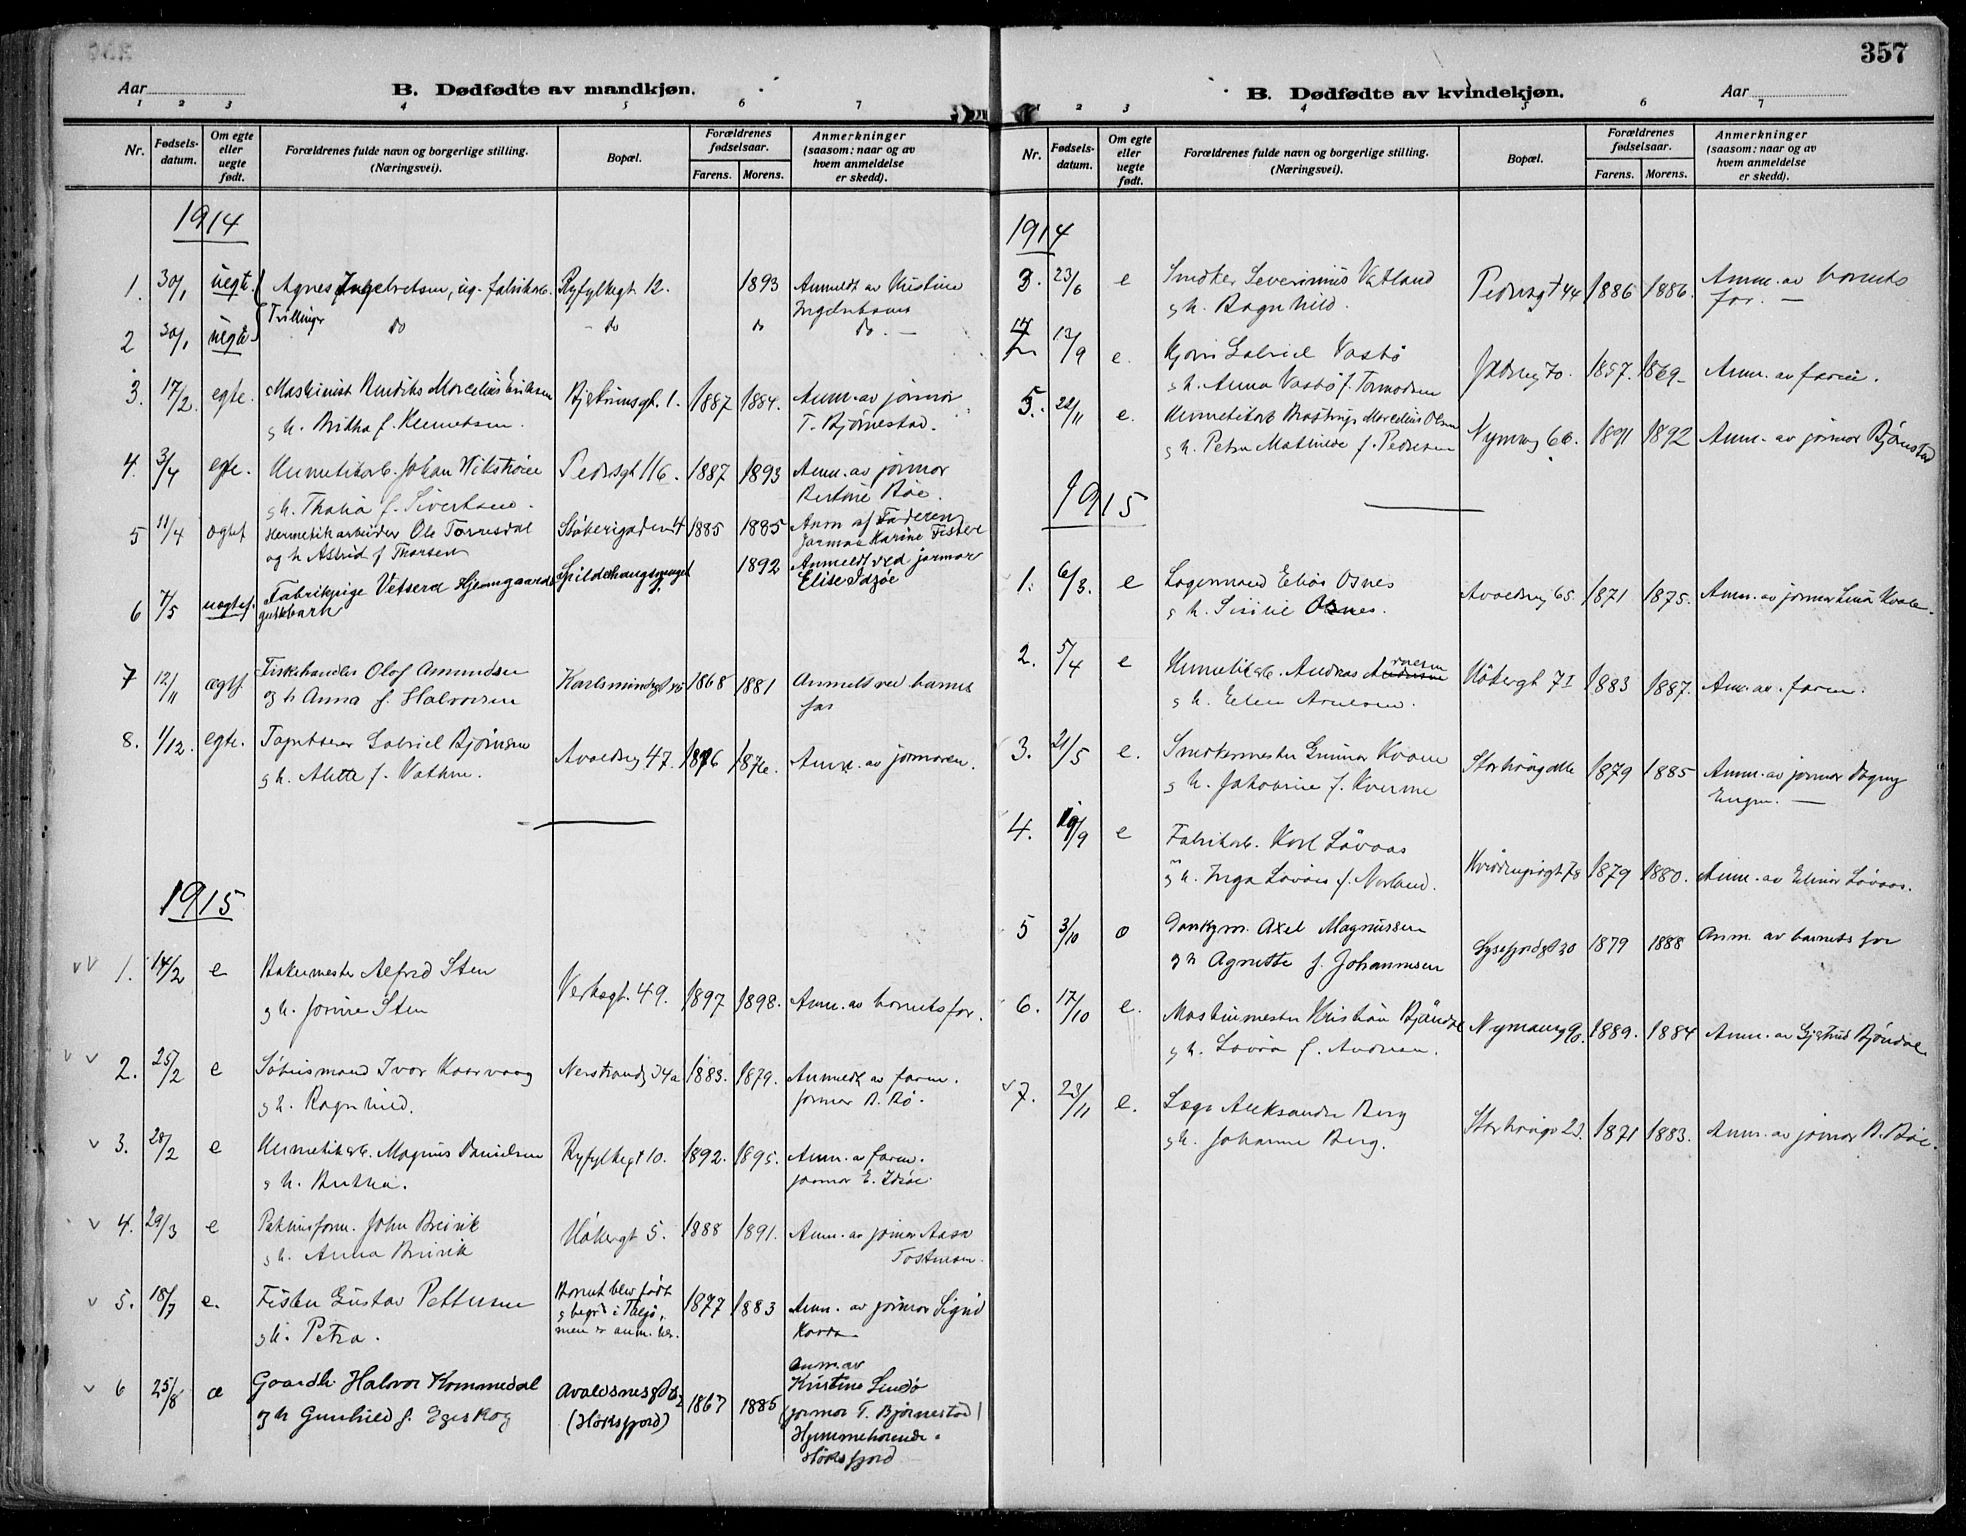 357
Aar
B. Dødfødte av mandkjøn.
1 2 3 4 5 6 7
Nr. Fødsels-datum. Om egte eller uegte født. Forældrenes fulde navn og borgerlige stilling. (Næringsvei). Bopæl. Forældrenes fødselsaar. Farens. Morens. Anmerkninger (saasom: naar og av hvem anmeldelse er skedd).
1914
1. 30/1 uegt. Agnes Ingebretsen, ug. fabrikarb. Ryfylkegt 12. 1893 Anmeldt av Kristine
Trillinger
2 30/1 uegte do - do do do. -
3. 17/2. egte. Maskinist Hendriks Marcelius Eriksen Bjerkreimsgt. 1. 1887 1884. Anm. av jormor
g h. Britha f. Klemetsen. T. Bjørnestad.
4. 3/4 egte. Hermetikarb. Johan Wikstrøm Pedersgt 116. 1887 1893 Anm. av jormor
g h. Thalia f. Sivertsen. Bertine Bøe.
5 11/4 ægtef Hermetikarbeider Ole Torresdal Støberigaden 4 1885 1885 Anm af Faderen
og h Astrid f Thorsen Jormor Karine Fister
6 7/5 uægtef. Fabrikpige Vetsera Hjemgaard 1892 Anmeldt ved jormor
guttebarn Elise Idsøe
7 12/11 ægtf. Fiskehandler Olaf Amundsen 1868 1881 Anmeldt ved barnets
og h Anna f. Halvorsen far
8. 1/12. egte. Tapetserer Gabriel Bjørnsen Avaldsng 47. 1876 1876. Anm. av jormoren.
g h. Alette f. Vathne.
1915
1. 14/2 e Bakermester Alfred Sten Verksgt. 49. 1897 1898. Anm. av barnets far.
g h. Jorine Sten
2. 25/2 e Ivar Kaarvaag 1883. 1879. Anmeldt av faren.
g h. Ragnhild. jormor B. Bø.
3. 28/2 e Hermetikarb. Magnus Danielsen Ryfylkegt 10. 1892. 1895. Anm. av faren.
g h. Bertha. jormor E. Idsøe.
4. 29/3 e Pakhusform. John Breivik Høkergt 5. 1888 1891. Anm. av jormor Aasa
g h. Anna Breivik Tostensen.
5. 18/7 e. Fisker Gustav Pettersen Barnet blev født 1877 1883 Anm. av jormor Sigrid
g h. Petra. men er anm. her.
6 25/8 æ Gaardb. Halvor Kommedal Avaldsnesgt 1867 1885 Anm. av
og h Gunhild f. Egeskog (Høksfjord) Kristine Lindø
(jormor T. Bjørnestad)
Hjemmehørende
Høksfjord
B. Dødfødte av kvindekjøn.
Aar
1 2 3 4 5 6 7
Nr. Fødsels-datum. Om egte eller uegte født. Forældrenes fulde navn og borgerlige stilling. (Næringsvei). Bopæl. Forældrenes fødselsaar. Farens. Morens. Anmerkninger (saasom: naar og av hvem anmeldelse er skedd).
1914
3. 23/6 e Snedker Severinius Vatland Pedersgt 44 1886 1886. Anm. av barnets
g h. Ragnhild. far. -
13/9 e. Gabriel Vasbø 1857. 1869- Anm. av faren.
g h. Anna Vasbø f. Tormodsen
5. 22/11 e. Hermetikarb. Marcelius Olsen Nymansg 66. 1891 1892 Anm. av jormor Bjørnestad
g h. Petra Mathilde f. Pedersen
1915
1. 6/3. e Lagermand Elias Osnes Avaldsng 65 1871 1875. Anm. av jormor Lina Kvale.
g h. Sirine Osnes.
2. 5/4 e Hermetikarb. Andreas Arnesen Høkergt 7 I 1883 1887. Anm. av. faren.
g h. Elen Arnesen.
3. 21/5 e. Snedkermester Gunnar Kvam Storhaugalle 1879 1885 Anm. av jormor Dagny
g h. Jakobine f. Kverme Engen. -
4. 19/9 e Fabrikarb. Karl Løvaas 1879 1880. Anm. av Elinor Løvaas.
g h. Inga Løvaas f. Norland.
5 3/10 æ Axel Magnussen Lysefjordgt 30 1879 1888 Anm av barnets far
g h Agnette f. Johannesen
6. 17/10 e. Maskinmester Kristian Bjøndal Nymansg 90. 1889. 1884 Anm. av Gjertrud Bjøndal.
g h. Lovra f. Andersen.
7. 23/11 e. Læge Aleksander Berg Storhaugv 23. 1871 1883. Anm. av jormor B. Bøe.
g h. Johanne Berg.